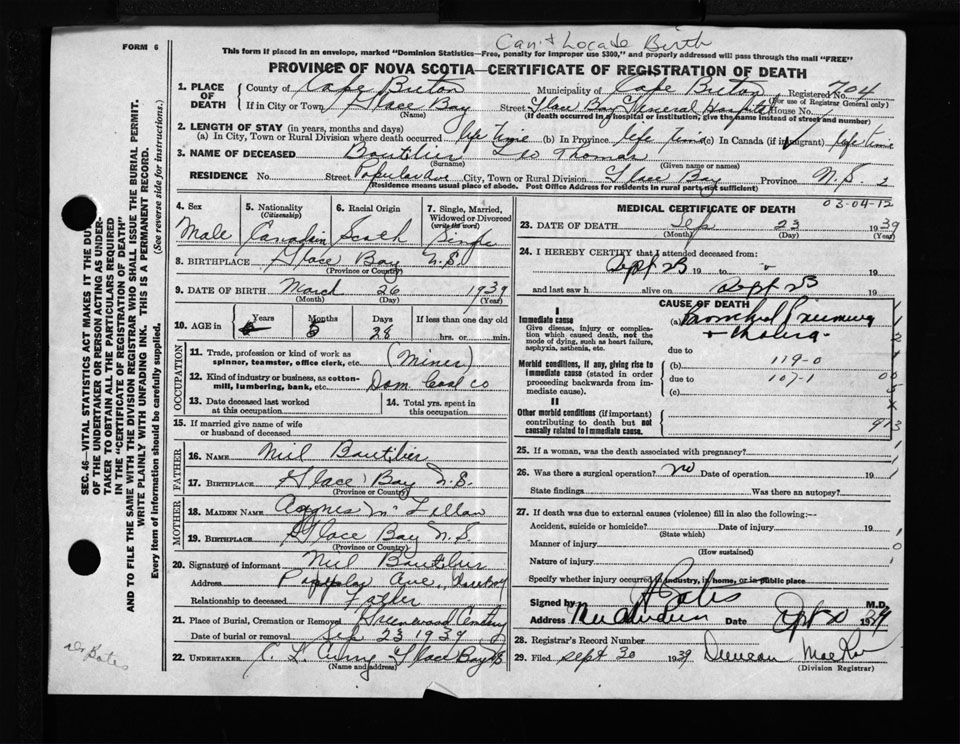 Can't Locate Birth
FORM 6
This form if placed in an envelope, marked "Dominion Statistics—Free, penalty for improper use $300," and properly addressed will pass through the mail "FREE"
PROVINCE OF NOVA SCOTIA—CERTIFICATE OF REGISTRATION OF DEATH
SEC. 46—VITAL STATISTICS ACT MAKES IT THE DUTY
OF THE UNDERTAKER OR PERSON ACTING AS UNDER-
TAKER TO OBTAIN ALL THE PARTICULARS REQUIRED
IN THE "CERTIFICATE OF REGISTRATION OF DEATH"
AND TO FILE THE SAME WITH THE DIVISION REGISTRAR WHO SHALL ISSUE THE BURIAL PERMIT.
WRITE PLAINLY WITH UNFADING INK. THIS IS A PERMANENT RECORD.
Every item of Information should be carefully supplied. (See reverse side for instructions.)
1. PLACE OF DEATH County of Cape Breton Municipality of Cape Breton Registered No. 704
(For use of Registrar General only)
If in City or Town Glace Bay Street Glace Bay General Hospital House No.
(Name) (If death occurred in a hospital or institution, give the name instead of street and number)
2. LENGTH OF STAY (in years, months and days)
(a) In City, Town or Rural Division where death occurred life Time (b) In Province life Time (c) In Canada (if immigrant) life time
3. NAME OF DECEASED Boutilier Leo Thomas
(Surname) (Given name or names)
RESIDENCE No. Street Ave City, Town or Rural Division Glace Bay Province N.S. 2
(Residence means usual place of abode. Post Office Address for residents in rural parts not sufficient)
03-04-12
4. Sex 5. Nationality (Citizenship) 6. Racial Origin 7. Single, Married, Widowed or Divorced (write the word)
Male Canadian Scotch Single
8. BIRTHPLACE Glace Bay N.S.
(Province or Country)
9. DATE OF BIRTH March 26 1939
(Month) (Day) (Year)
10. AGE in Years Months Days If less than one day old
5 28 hrs. or min.
OCCUPATION
11. Trade, profession or kind of work as spinner, teamster, office clerk, etc. (Miner)
12. Kind of industry or business, as cotton-mill, lumbering, bank, etc. Dom Coal Co
13. Date deceased last worked at this occupation 14. Total yrs. spent in this occupation
15. If married give name of wife or husband of deceased
FATHER
16. NAME Neil Boutilier
17. BIRTHPLACE Glace Bay N.S.
(Province or Country)
MOTHER
18. MAIDEN NAME Agnes
19. BIRTHPLACE Glace Bay N.S.
(Province or Country)
20. Signature of informant Neil Boutilier
Address Ave,
Relationship to deceased Father
21. Place of Burial, Cremation or Removal Greenwood Cemetery
Date of burial or removal Sep 23 1939
22. UNDERTAKER C. L. Curry Glace Bay N.S.
(Name and address)
MEDICAL CERTIFICATE OF DEATH
23. DATE OF DEATH Sep 23 1939
(Month) (Day) (Year)
24. I HEREBY CERTIFY that I attended deceased from:
Sept 23 19 to 19
and last saw h alive on Sept 23 19
CAUSE OF DEATH
I
Immediate cause
Give disease, injury or complication which caused death, not the mode of dying, such as heart failure, asphyxia, asthenia, etc.
(a) Bronchial Pneumonia
+ Cholera
due to
Morbid conditions, if any, giving rise to immediate cause (stated in order proceeding backwards from immediate cause).
(b) 119-0
due to 107-1
(c)
II
Other morbid conditions (if important) contributing to death but not causally related to immediate cause.
25. If a woman, was the death associated with pregnancy?
26. Was there a surgical operation? no Date of operation 19
State findings Was there an autopsy?
27. If death was due to external causes (violence) fill in also the following:—
Accident, suicide or homicide? Date of injury 19
(State which)
Manner of injury
(How sustained)
Nature of injury
Specify whether injury occurred in industry, in home, or in public place
Signed by M.D.
Address Date
28. Registrar's Record Number
29. Filed Sept 30 1939 Duncan
(Division Registrar)